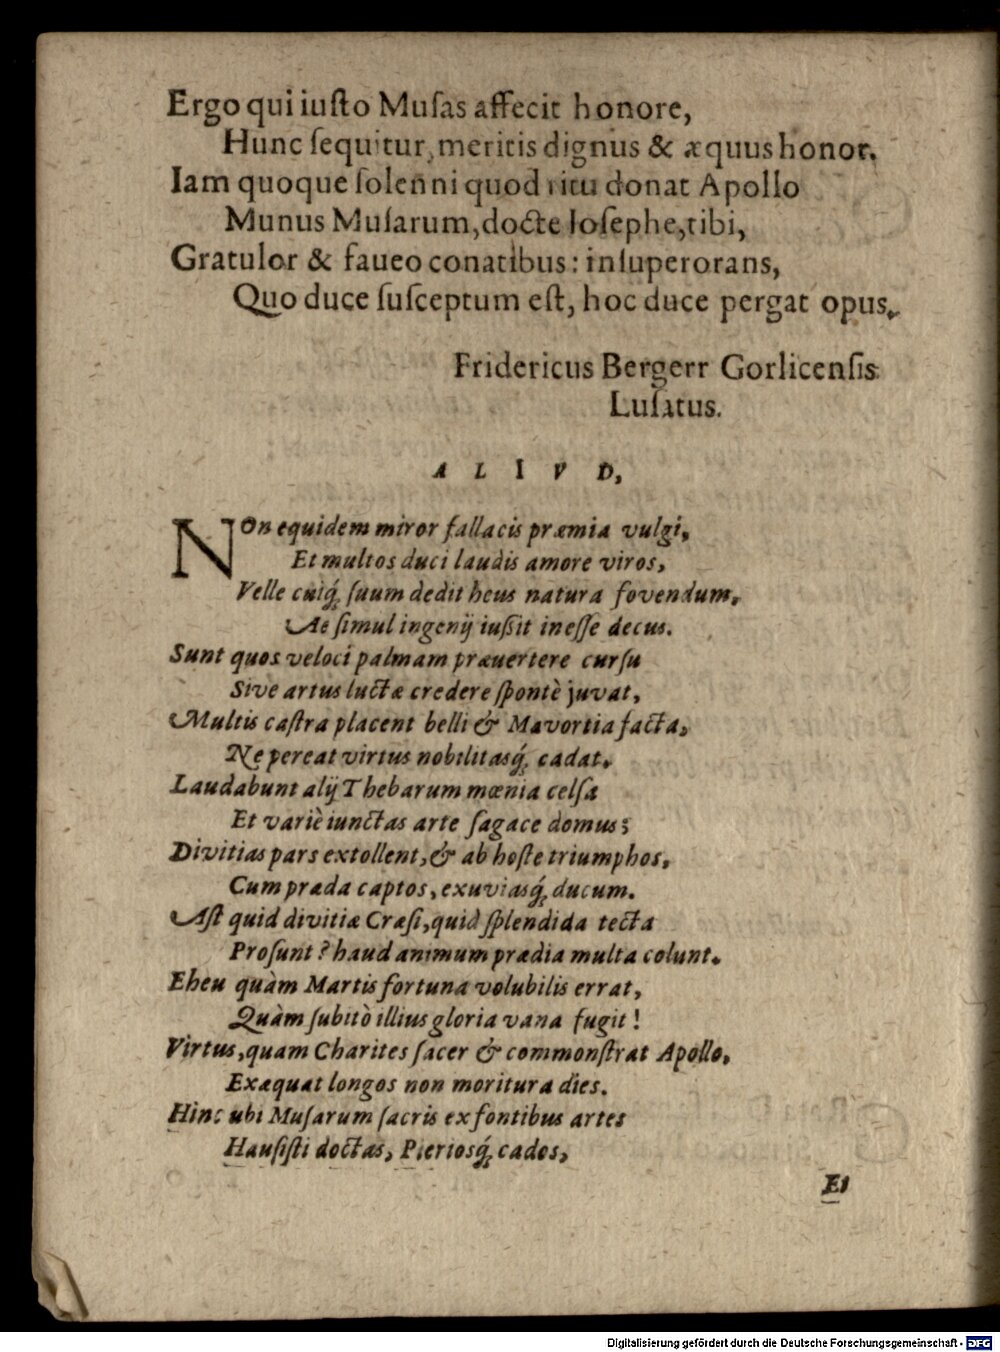 Ergo qui iuſto Muſas affecit honore,
Hunc ſequitur, meritis dignus & æquus honor.
Iam quoque ſolenni quod ritu donat Apollo
Munus Muſarum, docte Ioſephe, tibi,
Gratulor & faueo conatibus: inſuperorans,
Quo duce ſuſceptum eſt, hoc duce pergat opus.
Fridericus Bergerr Gorlicenſis
Luſatus.
ALIVD,
NOn equidem miror fallacis præmia vulgi,
Et multos duci laudis amore viros,
Velle cuiq́; ſuum dedit heus natura fovendum,
Ac ſimul ingenij iußit ineſſe decus.
Sunt quos veloci palmam præuertere curſu
Sive artus luctæ credere ſpontè juvat,
Multis caſtra placent belli & Mavortia facta,
Ne pereat virtus nobilitasq́; cadat.
Laudabunt alij Thebarum mœnia celſa
Et variè iunctas arte ſagace domus;
Divitias pars extollent, & ab hoſte triumphos,
Cum præda captos, exuviasq́; ducum.
Aſt quid divitiæ Cræſi, quid ſplendida tecta
Proſunt? haud animum prædia multa colunt.
Eheu quàm Martis fortuna volubilis errat,
Quàm ſubitò illius gloria vana fugit!
Virtus, quam Charites ſacer & commonſtrat Apollo,
Exæquat longos non moritura dies.
Hinc ubi Muſarum ſacris ex fontibus artes
Hauſiſti doctas, Pieriosq́; cados,
Et
Digitalisierung gefördert durch die Deutsche Forschungsgemeinschaft - DFG